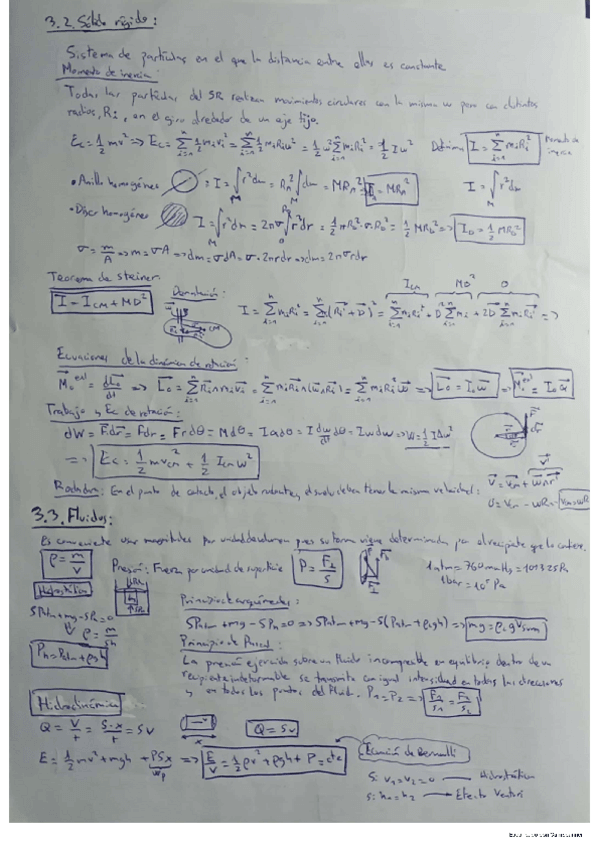 3.2. Sólido rígido:
Sistema de partículas en el que la distancia entre ellas es constante
Momento de inercia:
Todas las partículas del SR realizan movimientos circulares con la misma w pero con distintos
radios, Ri, en el giro alrededor de un eje fijo.
Ec = 1/2 mv² => Ec = Σ 1/2 mi vi² = Σ 1/2 mi Ri² w² = 1/2 w² Σ mi Ri² = 1/2 I w² Definimos I = Σ mi Ri² Momento de inercia
• Anillo homogéneo = I = ∫ r² dm = Rn² ∫ dm = MRn² I = MRn² I = ∫ r² dm
• Disco homogéneo I = ∫ r² dm = 2πσ ∫ r³ dr = 1/2 πR² · σ · R² = 1/2 MR² => I = 1/2 MR²
σ = m/A => m = σA => dm = σdA = σ · 2πrdr => dm = 2πσrdr
Teorema de Steiner:
I = ICM + MD² ICM MD² 0
I = Σ mi Ri² = Σ mi (Ri + D)² = Σ mi Ri² + D² Σ mi + 2D Σ mi Ri =>
Ecuaciones de la dinámica de rotación:
Mo ext = dLo/dt => Lo = Σ Ri ∧ mi vi = Σ mi Ri ∧ (w ∧ Ri) = Σ mi Ri² w => Lo = Io w => Mo ext = Io α
Trabajo y Ec de rotación:
dW = F dr = F dr = F r dθ = M dθ = Iα dθ = I dw/dt dθ = I w dw => W = 1/2 I Δw²
=> Ec = 1/2 m vCM² + 1/2 ICM w²
Rodadura: En el punto de contacto, el objeto rodante y el suelo deben tener la misma velocidad:
3.3. Fluidos:
Es conveniente usar magnitudes por unidad de volumen pues su forma viene determinada por el recipiente que lo contiene.
ρ = m/V Presión: Fuerza por unidad de superficie P = F⊥/S 1 atm = 760 mmHg = 101325 Pa
1 bar = 10⁵ Pa
Hidrostática
Principio de Arquímedes:
SPatm + mg - SPh = 0
SPatm + mg - SPh = 0 => SPatm + mg - S(Patm + ρgh) => mg = ρ g Vsum
ρ = m/Sh
Principio de Pascal:
Ph = Patm + ρgh
La presión ejercida sobre un fluido incompresible en equilibrio dentro de un
recipiente indeformable se transmite con igual intensidad en todas las direcciones
y en todos los puntos del fluido. P1 = P2 => F1/S1 = F2/S2
Hidrodinámica
Q = V/t = S·x/t = Sv Q = Sv
Ecuación de Bernoulli
E = 1/2 mv² + mgh + PSx => E/V = 1/2 ρv² + ρgh + P = cte
Si v1 = v2 = 0 → Hidrostática
Si h1 = h2 → Efecto Venturi